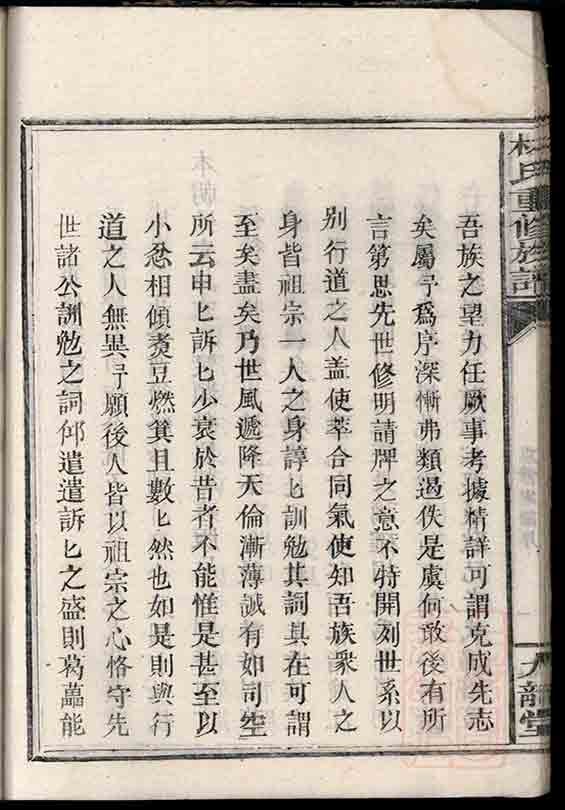 杜氏重修族譜
吾族之望力任厥事考據精詳可謂克成先志
矣屬予爲序深慚弗類遏佚是虞何敢後有所
言第思先世修明請牌之意不特開列世系以
別行道之人盖使萃合同氣使知吾族衆人之
身皆祖宗一人之身諄匕訓勉其詞具在可謂
至矣盡矣乃世風遞降天倫漸薄誠有如司空
所云申匕訴匕少衰於昔者不能惟是甚至以
小忿相傾煑豆燃箕且數匕然也如是則與行
道之人無異予願後人皆以祖宗之心恪守先
世諸公訓勉之詞仰遣遣訴匕之盛則葛藟能